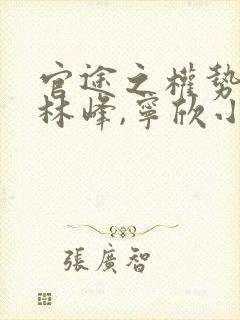 官途之權勢
林峰,寧欣小
張廣智